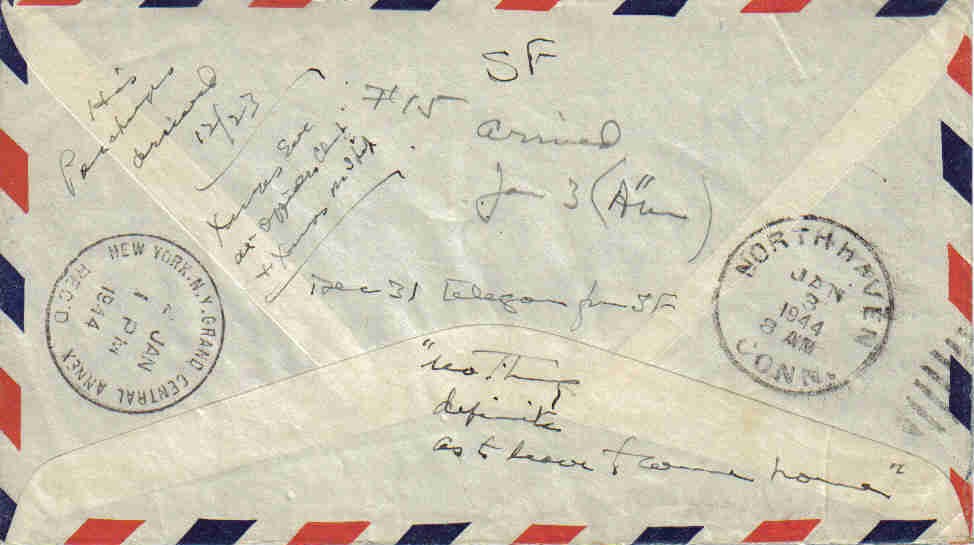 SF
His
Packages
arrived
12/23
Xmas Eve
at Officers Club
+ Xmas
#15
arrived
Jan 3 (Mon)
Dec 31 Telegram from SF
"nothing
definite
as to leave + come home"
NEW YORK, N.Y. GRAND CENTRAL ANNEX
REC'D.
JAN
2 PM
1944
NORTH HAVEN
JAN
3
1944
8 AM
CONN.